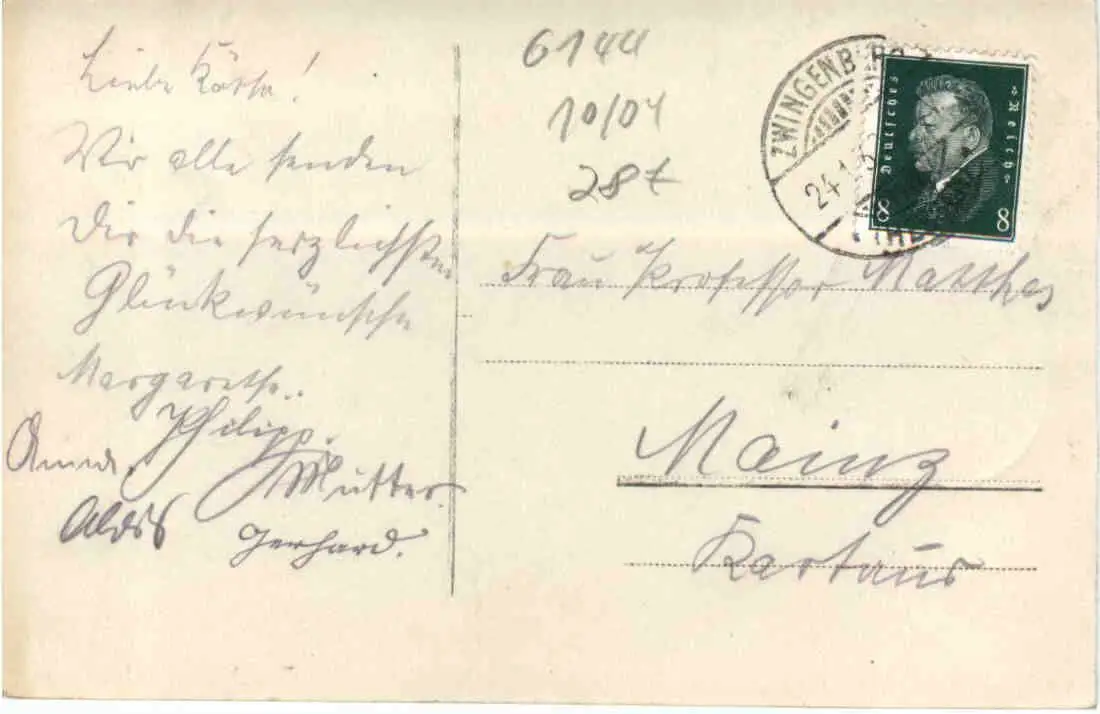 Liebe Käthe!
Wir alle senden
Dir die herzlichsten
Glückwünsche
Margarethe.
Philipp.
Anna.
Mutter
Alois
Gerhard.
6144
10/04
28t
ZWINGENBERG
24.1
Deutsches Reich
8 8
Frau Professor Matthes
Mainz
Kartaus